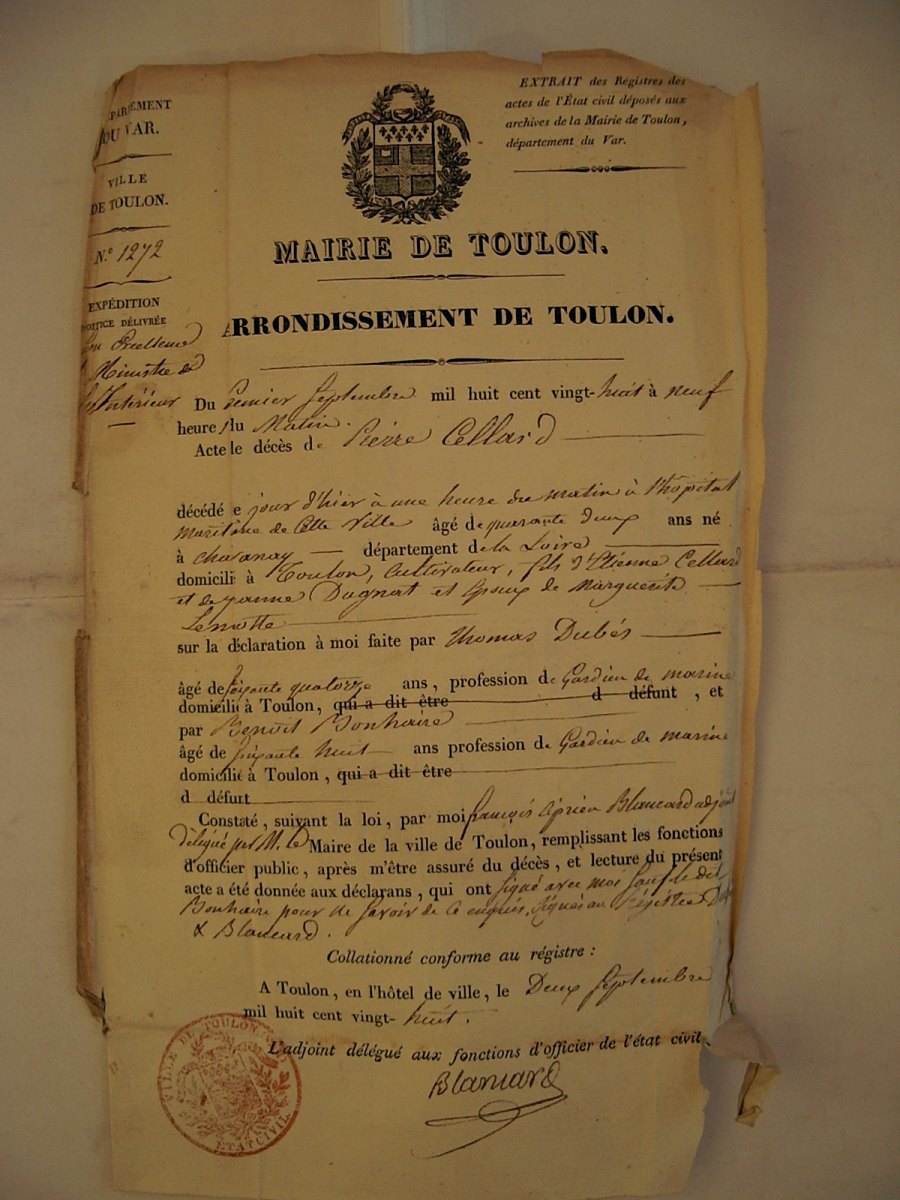 EXTRAIT des Régistres des
actes de l'État civil déposés aux
archives de la Mairie de Toulon,
département du Var.
PARTEMENT
DU VAR.
VILLE
DE TOULON.
N.º 1272
EXPÉDITION
OFFICE DÉLIVRÉE
Son Excellence
Ministre de
l'Intérieur
MAIRIE DE TOULON.
ARRONDISSEMENT DE TOULON.
Du premier Septembre mil huit cent vingt-huit à neuf
heures du Matin.
Acte le décès de Pierre Cellard
décédé e jour d'hier à une heure du matin à l'hôpital
maritime de Cette Ville âgé de quarante deux ans né
à chavanay département de la Loire
domicilié à Toulon, Cultivateur, fils d'Etienne Cellard
et de Jeanne Dagnat et Epoux de Marguerite
sur la déclaration à moi faite par Thomas Dubés
âgé de soixante quatorze ans, profession de Gardien de marine
domicilié à Toulon, qui a dit être d défunt, et
par Benoit Bonhaire
âgé de soixante huit ans profession de Gardien de marine
domicilié à Toulon, qui a dit être
d défunt
Constaté, suivant la loi, par moi françois Ciprien Blancard adjoint
délégué par M. le Maire de la ville de Toulon, remplissant les fonctions
d'officier public, après m'être assuré du décès, et lecture du présent
acte a été donnée aux déclarans, qui ont signé avec moi sauf le dit
Bonhaire pour ne savoir de ce enquis, Signés au Régistre
& Blancard.
Collationné conforme au régistre :
A Toulon, en l'hôtel de ville, le Deux Septembre
mil huit cent vingt-huit.
L'adjoint délégué aux fonctions d'officier de l'état civil
Blancard
VILLE DE TOULON
ETAT CIVIL